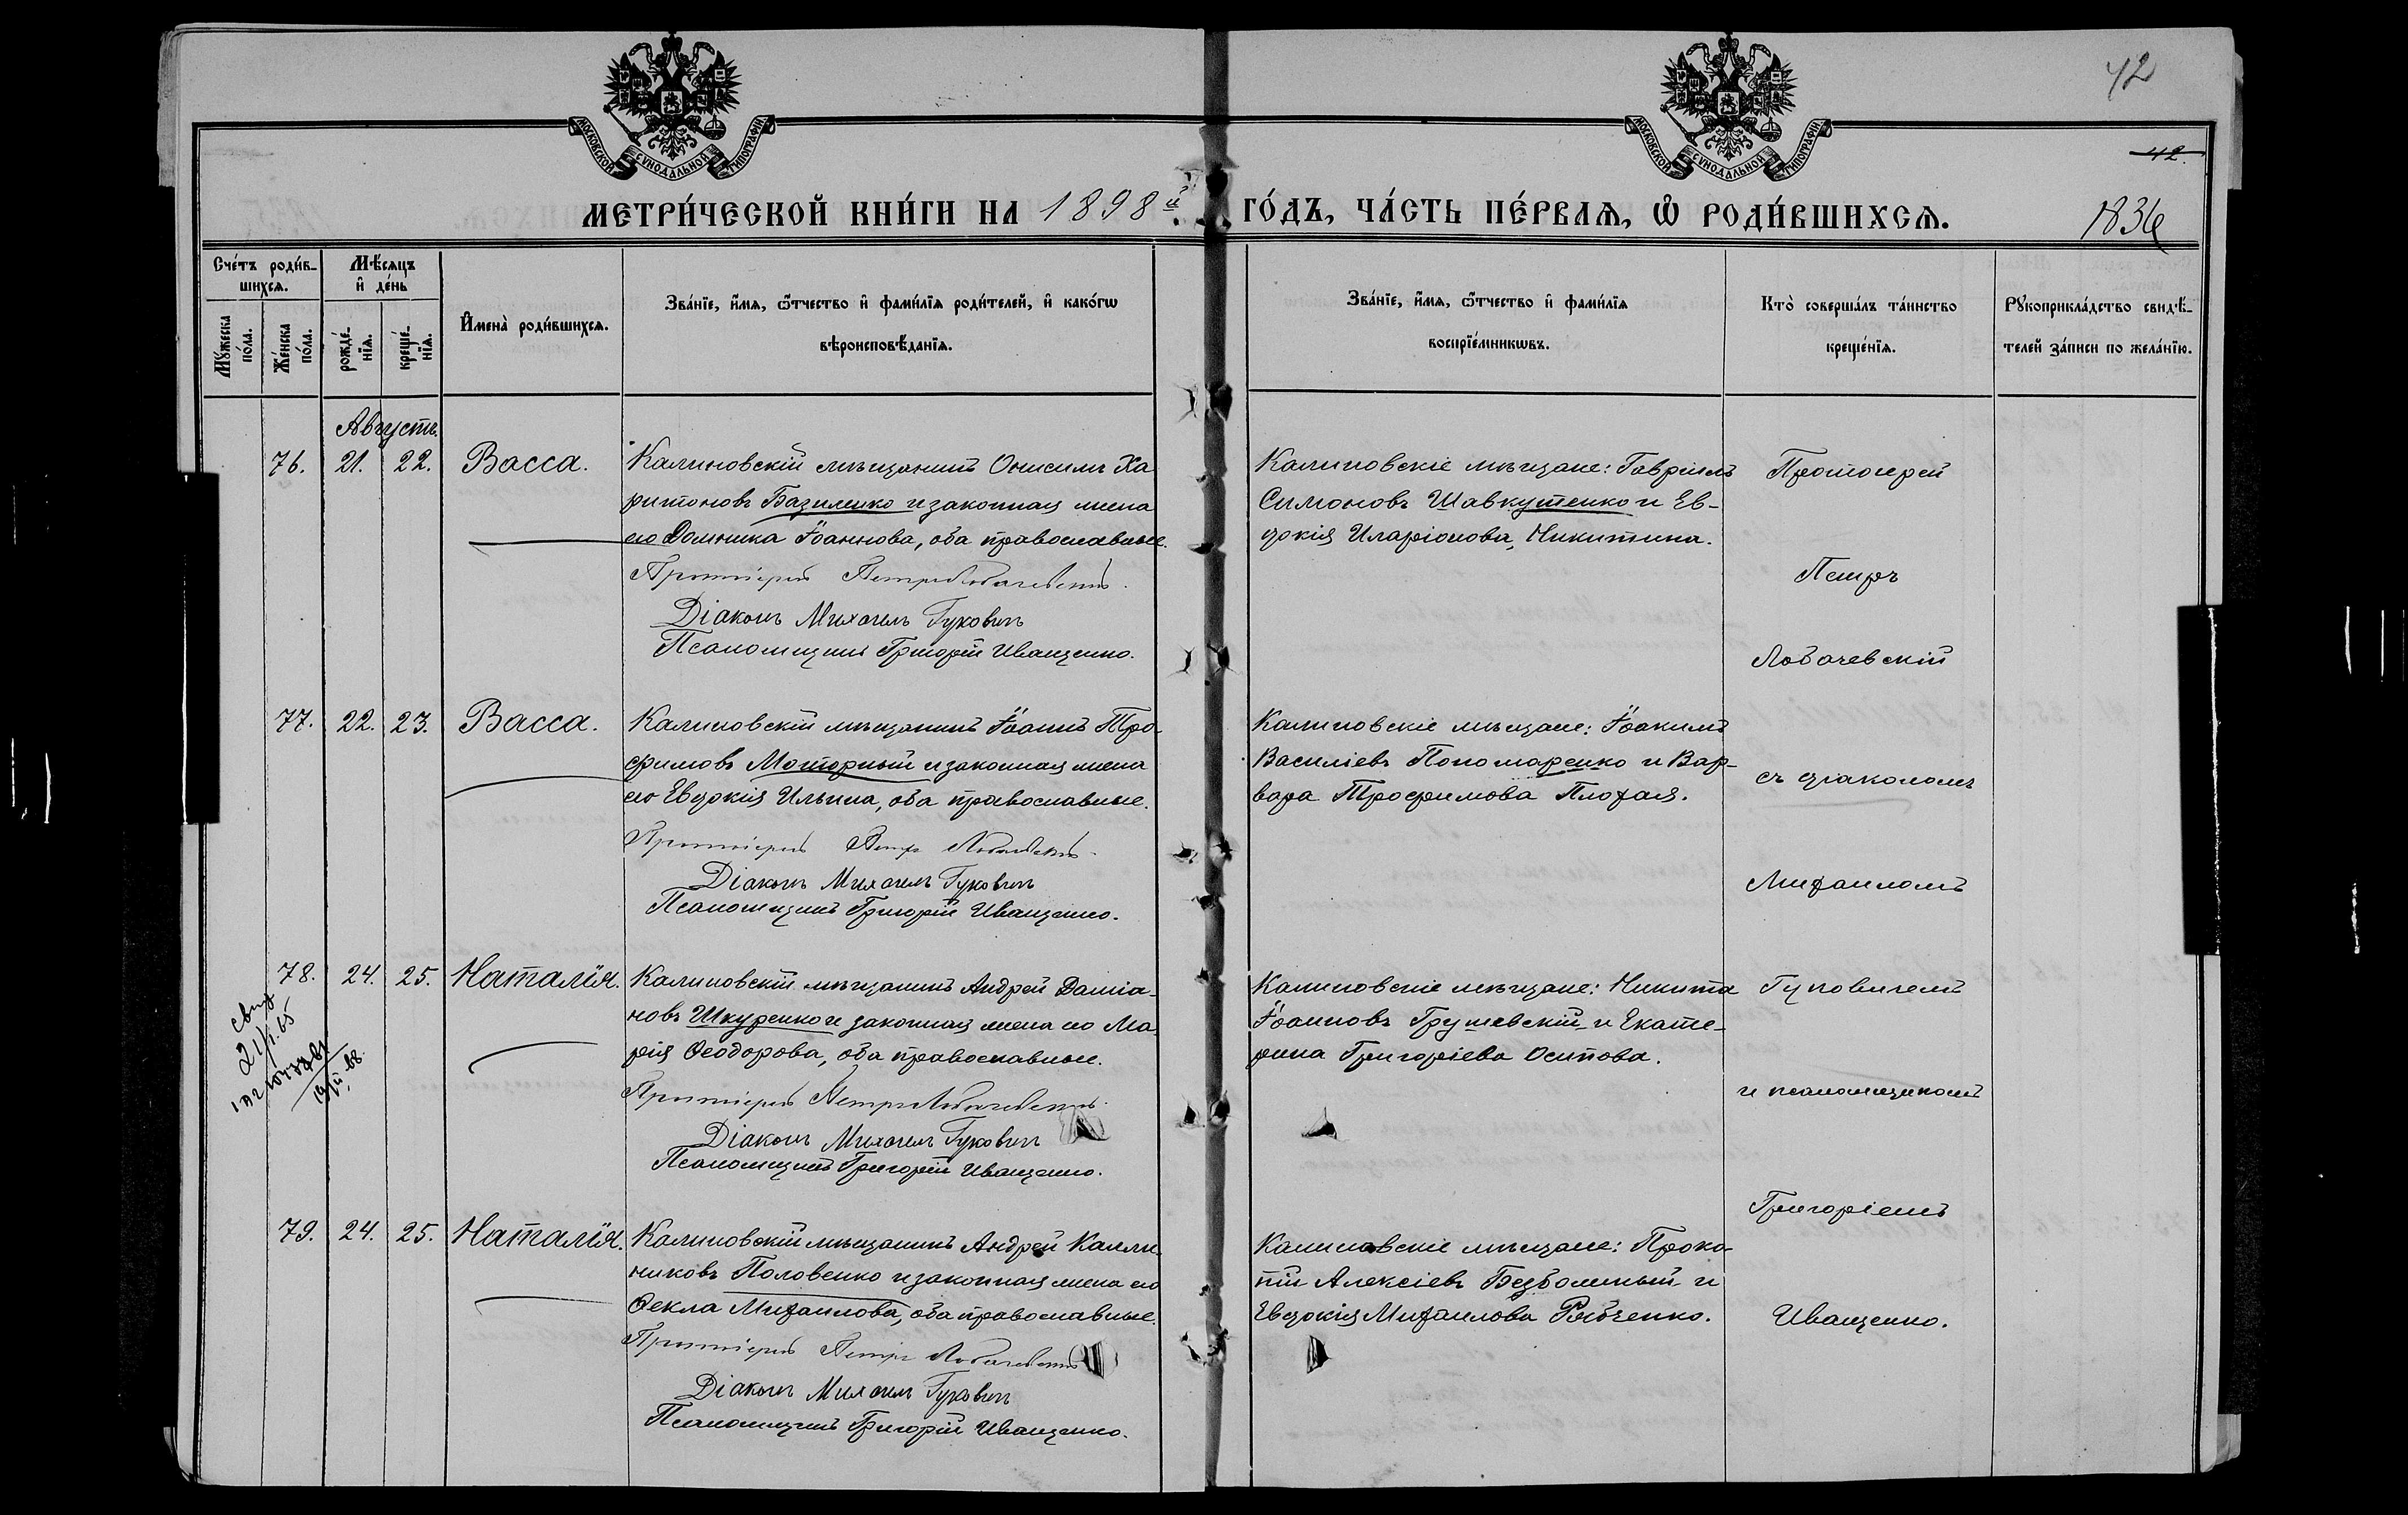 42
МОСКОВСКОЙ СУНОДАЛЬНОЙ ТИПОГРАФІИ
МОСКОВСКОЙ СУНОДАЛЬНОЙ ТИПОГРАФІИ
42.
МЕТРИ́ЧЕСКОЙ КНИ́ГИ НА 1898й ГО́ДЪ, ЧА́СТЬ ПЕ́РВАѦ, Ѡ҆ РОДИ́ВШИХСѦ.
1836
Сче́тъ роди́в-
шихсѧ.
Мѣ́сѧцъ
и҆ де́нь
Мꙋ́жеска
по́ла.
Же́нска
по́ла.
рожде́-
нїѧ.
креще́-
нїѧ.
И҆мена̀ роди́вшихсѧ.
Зва́нїе, и҆́мѧ, ѻ҆́тчество и҆ фами́лїѧ роди́телей, и҆ како́гѡ
вѣроисповѣ́данїѧ.
Зва́нїе, и҆́мѧ, ѻ҆́тчество и҆ фами́лїѧ
воспрїе́мникѡвъ.
Кто̀ соверша́лъ та́инство
креще́нїѧ.
Рꙋкоприкла́дство свидѣ́-
телей за́писи по жела́нїю.
Августъ.
76. 21. 22. Васса.
Калиновскій мѣщанинъ Онисимъ Ха
ритоновъ Базиленко и законная жена
его Домника Іоаннова, оба православные.
Протоіерей Петръ Лобачевскій.
Діаконъ Михаилъ Гуковичъ
Псаломщикъ Григорій Иващенко.
Калиновскіе мѣщане: Гавріилъ
Симоновъ Шавкутенко и Ев-
докія Иларіонова Никитина.
Протоіерей
Петръ
Лобачевскій
77. 22. 23. Васса.
Калиновскій мѣщанинъ Іоаннъ Тро-
фимовъ Моторный и законная жена
его Евдокія Ильина, оба православные.
Протоіерей Петръ Лобачевскій.
Діаконъ Михаилъ Гуковичъ
Псаломщикъ Григорій Иващенко.
Калиновскіе мѣщане: Іоакимъ
Василіевъ Пономаренко и Вар-
вара Трофимова Плохая.
съ діакономъ
Михаиломъ
78. 24. 25. Наталія.
Калиновскій мѣщанинъ Андрей Даміа-
новъ Шкуренко и законная жена его Ма-
рія Ѳеодорова, оба православные.
Протоіерей Петръ Лобачевскій.
Діаконъ Михаилъ Гуковичъ
Псаломщикъ Григорій Иващенко.
Калиновскіе мѣщане: Никита
Іоанновъ Грушевскій и Екате-
рина Григоріева Осипова.
Гуковичемъ
и псаломщикомъ
Григоріемъ
79. 24. 25. Наталія.
Калиновскій мѣщанинъ Андрей Калли-
никовъ Половенко и законная жена его
Ѳекла Михаилова, оба православные.
Протоіерей Петръ Лобачевскій
Діаконъ Михаилъ Гуковичъ
Псаломщикъ Григорій Иващенко.
Калиновскіе мѣщане: Проко-
пій Алексіевъ Бездомный и
Евдокія Михаилова Рябченко.
Иващенко.